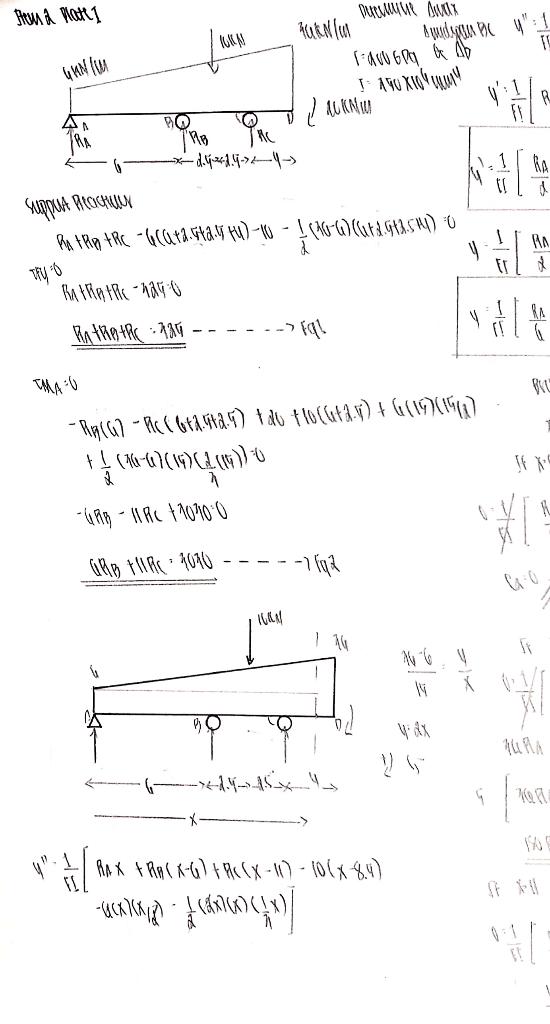 Item 2 Plate 1
Determine Δmax
Δmidspan BC
& ΔD
E = 200 GPa
I = 250 x 10⁶ mm⁴
10 KN
36 KN/m
6 KN/m
20 KN/m
A
B
RA
RB
RC
6
2.5
2.5
4
Support Reactions
RA + RB + RC - 6(6+2.5+2.5+4) - 10 - 1/2 (36-6)(6+2.5+2.5+4) = 0
ΣFy = 0
RA + RB + RC - 325 = 0
RA + RB + RC = 325 - - - - - -> Eq1
ΣMA = 0
-RB(6) - RC(6+2.5+2.5) + 20 + 10(6+2.5) + 6(15)(15/2)
+ 1/2 (36-6)(15)(2/3(15)) = 0
-6RB - 11RC + 3030 = 0
6RB + 11RC = 3030 - - - - -> Eq2
10KN
36
6
B
C
D
6
2.5
2.5
4
x
36-6/15 = y/x
y = 2x
y'' = 1/EI [ RAx + RB(x-6) + RC(x-11) - 10(x-8.5)
-6(x)(x/2) - 1/2(2x)(x)(1/3x) ]
y'' = 1/
y' = 1/EI [ R
y' = 1/EI [ RA/2
y = 1/EI [ RA/2
y = 1/EI [ RA/6
If x=
0 = 1/EI [ R
C2=0
If
0 = 1/EI [
36RA
If x=11
0 = 1/EI [